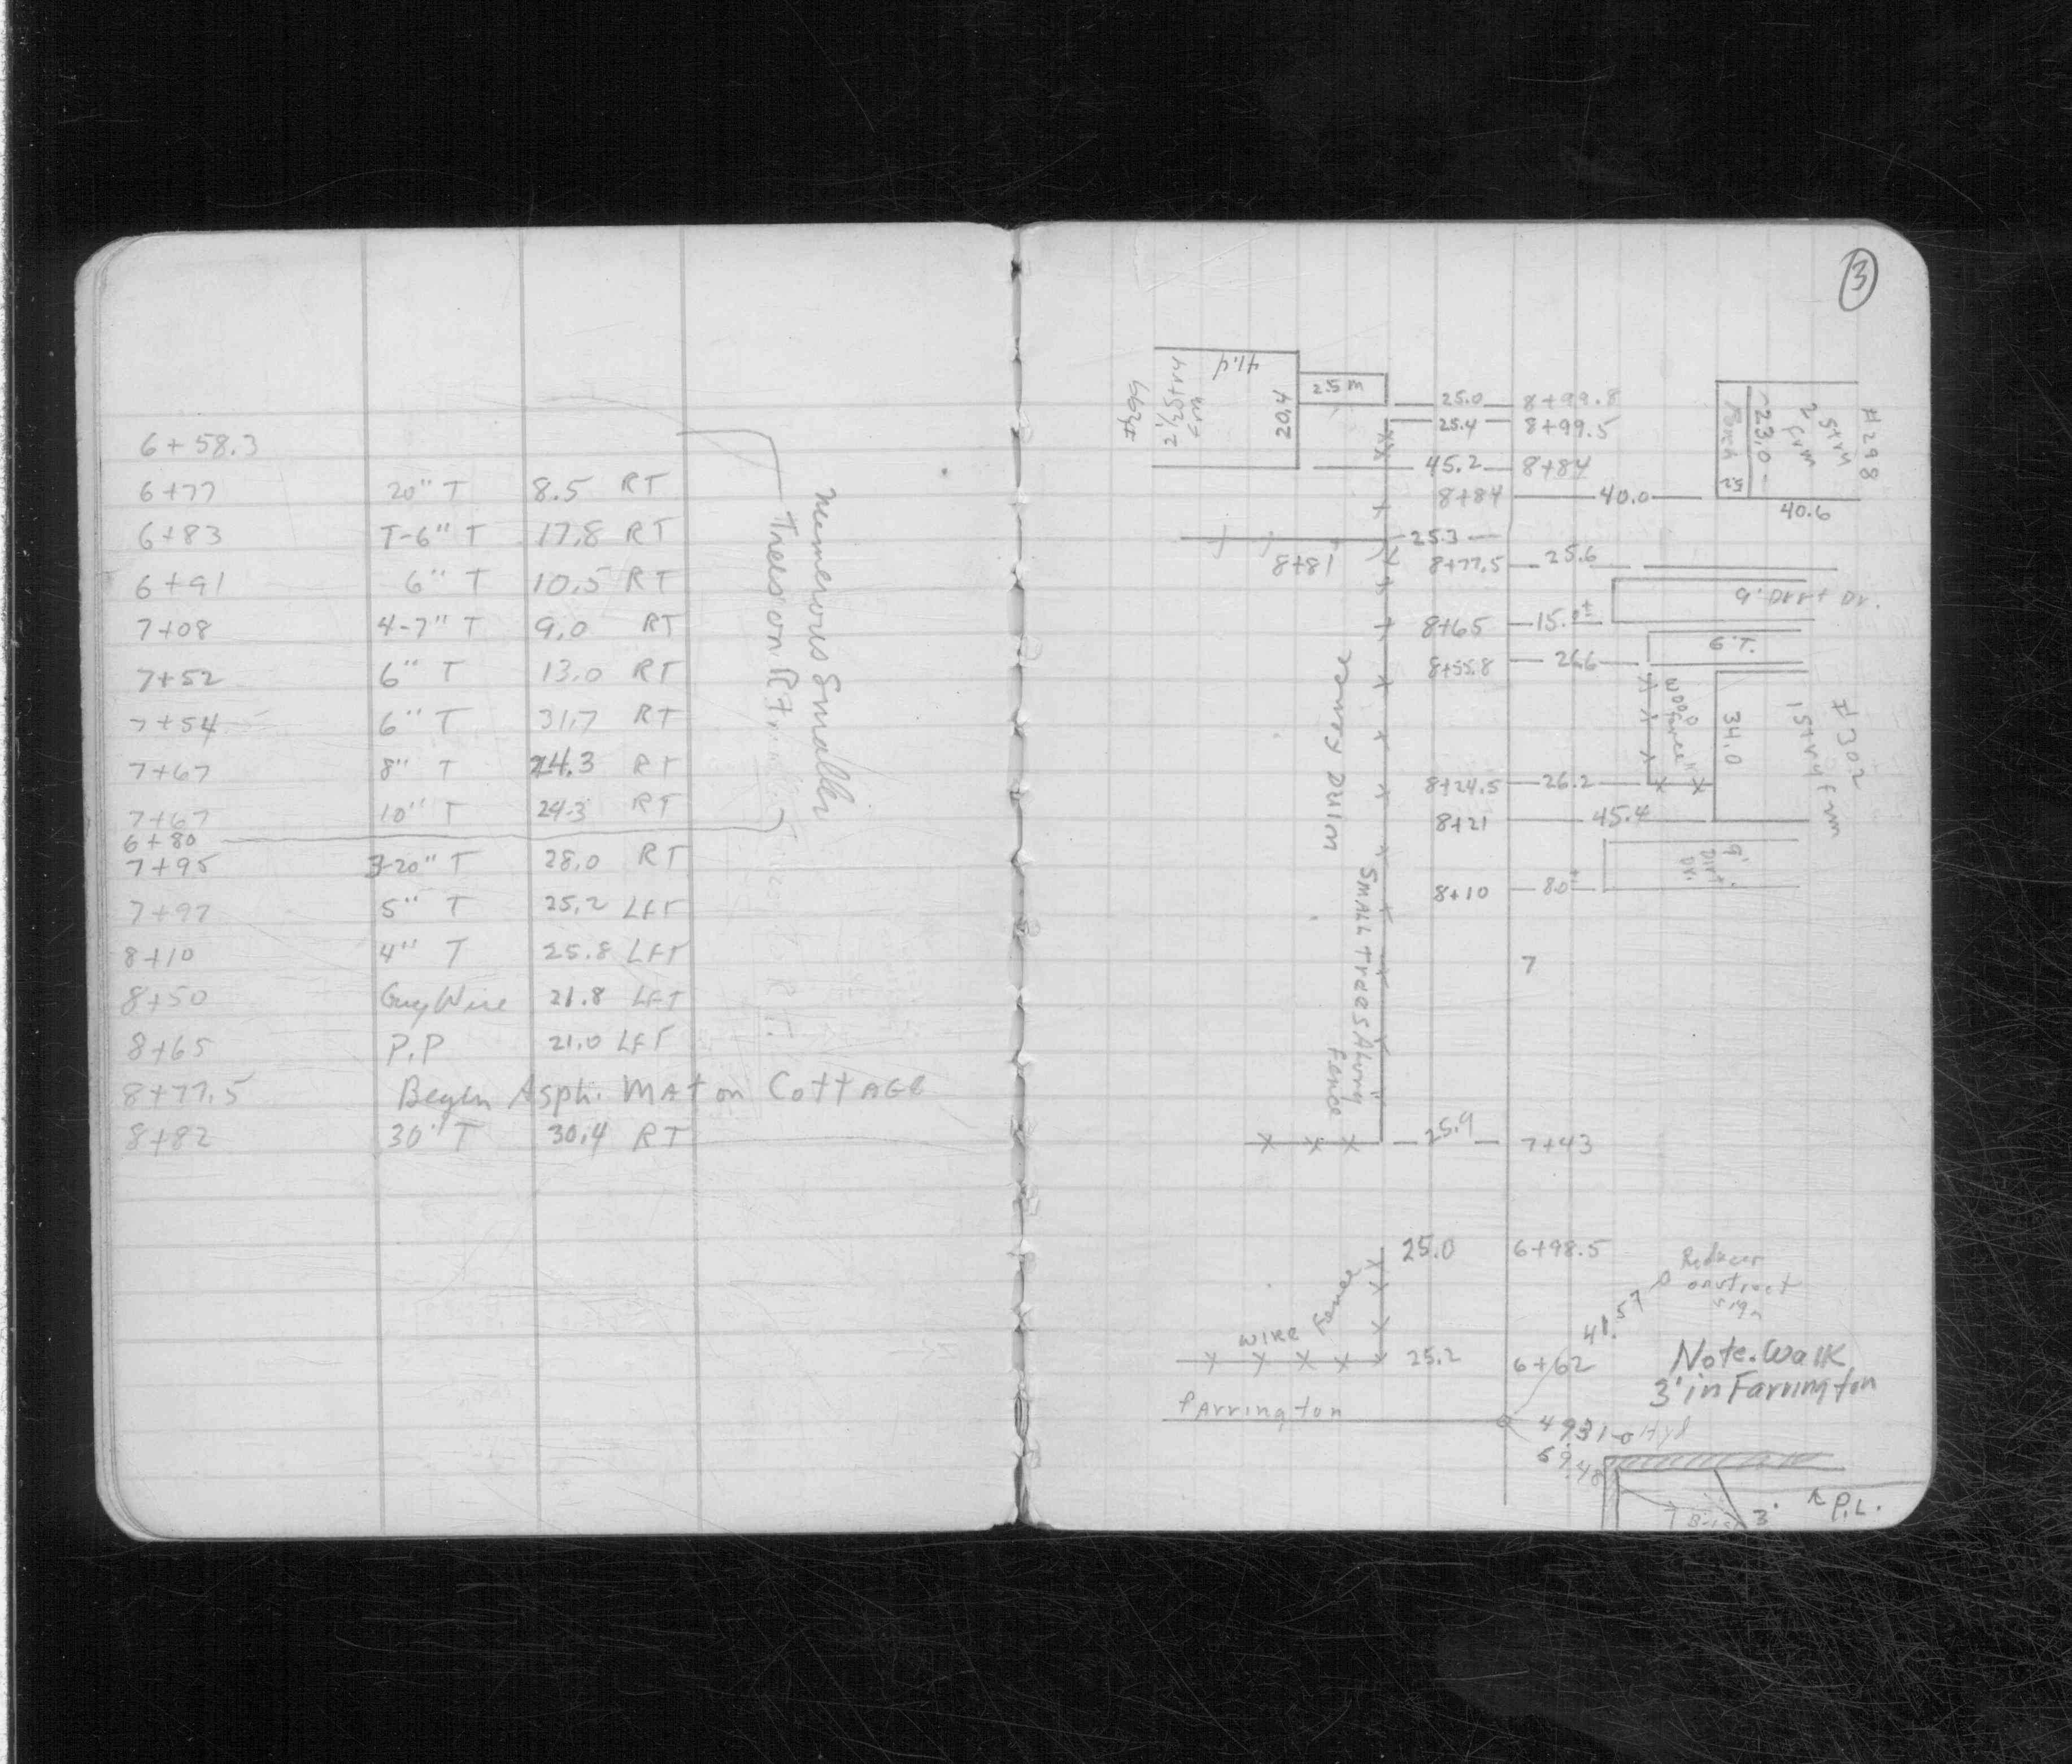 6+58.3
6+77 20" T 8.5 RT
6+83 T-6" T 17.8 RT
6+91 6" T 10.5 RT
7+08 4-7" T 9.0 RT
7+52 6" T 13.0 RT
7+54 6" T 31.7 RT
7+67 8" T 24.3 RT
7+67 10" T 24.3 RT
6+80
7+95 3-20" T 28.0 RT
7+97 5" T 25.2 LFT
8+10 4" T 25.8 LFT
8+50 Guy Wire 21.8 LFT
8+65 P.P 21.0 LFT
8+77.5 Begin Asph. MAT on CottAGE
8+82 30" T 30.4 RT
Numerous Smaller
Trees on RT
3
#299
2½ Stry
Frm
41.4
20.4
25m
25.0 8+99.8
25.4 8+99.5
45.2 8+84
8+84 40.0
25.3
8+81
8+77.5 25.6
8+65 15.0±
8+55.8 26.6
8+24.5 26.2
8+21 45.4
8+10 8.0±
7
25.9 7+43
#298
2 Stry
Frm
23.0
Porch 5.2
40.6
9' Dirt Dr.
6' T.
Wood Fence
34.0
#302
1 Stry frm
9' Dirt Dr.
Wind Fence
SMALL Trees Along
Fence
25.0 6+98.5
Wire Fence
25.2 6+62
41.57
sign
Note. Walk
3' in Farrington
Farrington
49.31 Hyd
59.48
3'
P.L.